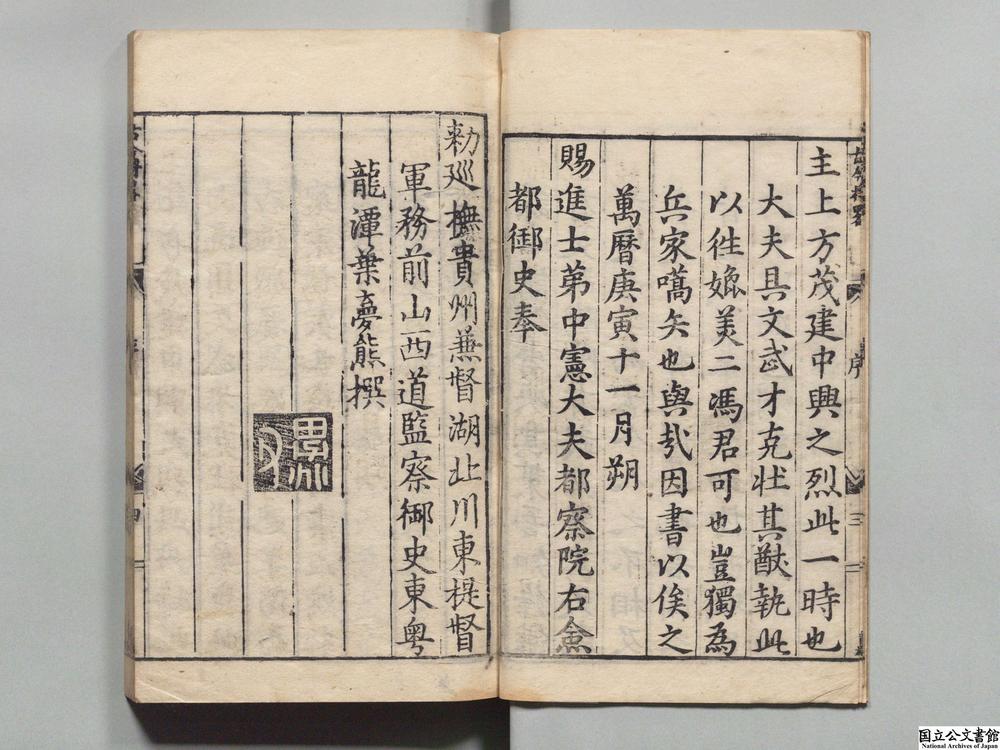 主上方茂建中興之烈此一時也
大夫具文武才克壯其猷執此
以徃媲美二馮君可也豈獨為
兵家嚆矢也與㢤因書以俟之
萬曆庚寅十一月朔
賜進士第中憲大夫都察院右僉
都御史奉
勑巡撫貴州兼督湖北川東提督
軍務前山西道監察御史東粤
龍潭葉夢熊撰
序
三
国立公文書館
National Archives of Japan